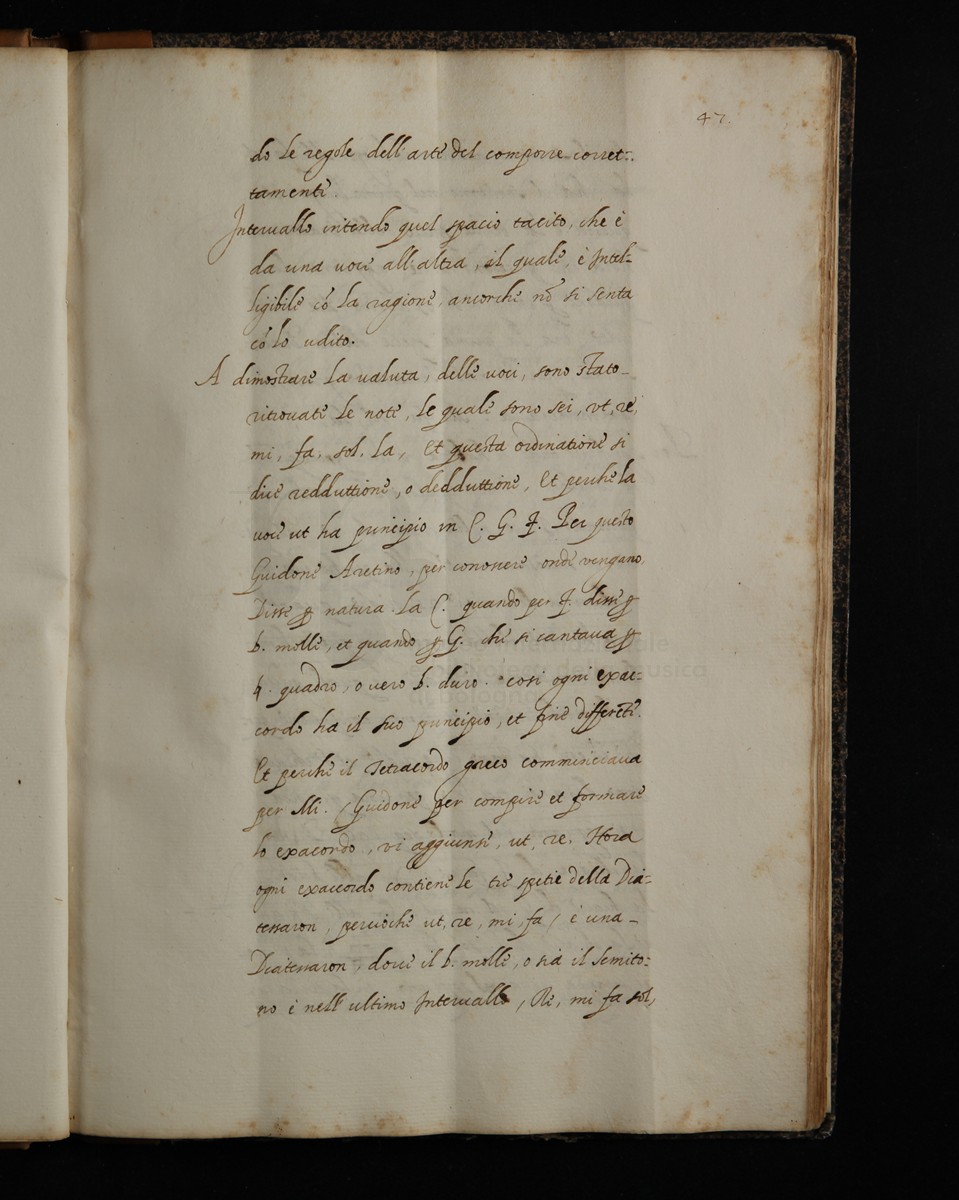 47.
do le regole dell'arte del comporre corret-
tamente.
Intervallo intendo quel spacio tacito, che è
da una voce all'altra, il quale, è Intel-
ligibile cõ la ragione, ancorche nõ si senta
cõ lo udito.
A dimostrare la valuta, delle voci, sono stato
ritrovate le note, le quale sono sei, ut, re,
mi, fa, sol, la, Et questa ordinatione si
dice redduttione, o dedduttione, Et perche la
voce ut ha principio in C. G. F. Per questo
Guidone Aretino, per conoscere onde vengano,
Disse ꝑ natura la C. quando per F. disse ꝑ
b. molle, et quando ꝑ G. che si cantava ꝑ
♮. quadro, o vero b. duro. cosi ogni exac-
cordo ha il suo principio, et fine differẽte.
Et perche il Tetracordo greco comminciava
per Mi. Guidone per compire et formare
lo exacordo, vi aggiunse, ut, re. Hora
ogni exaccordo contiene le tre spetie della Dia-
tessaron, percioche ut, re, mi, fa, è una
Diatessaron, dove il b. molle, o sia il Semito-
no è nell'ultimo Intervallo, Re, mi fa sol,